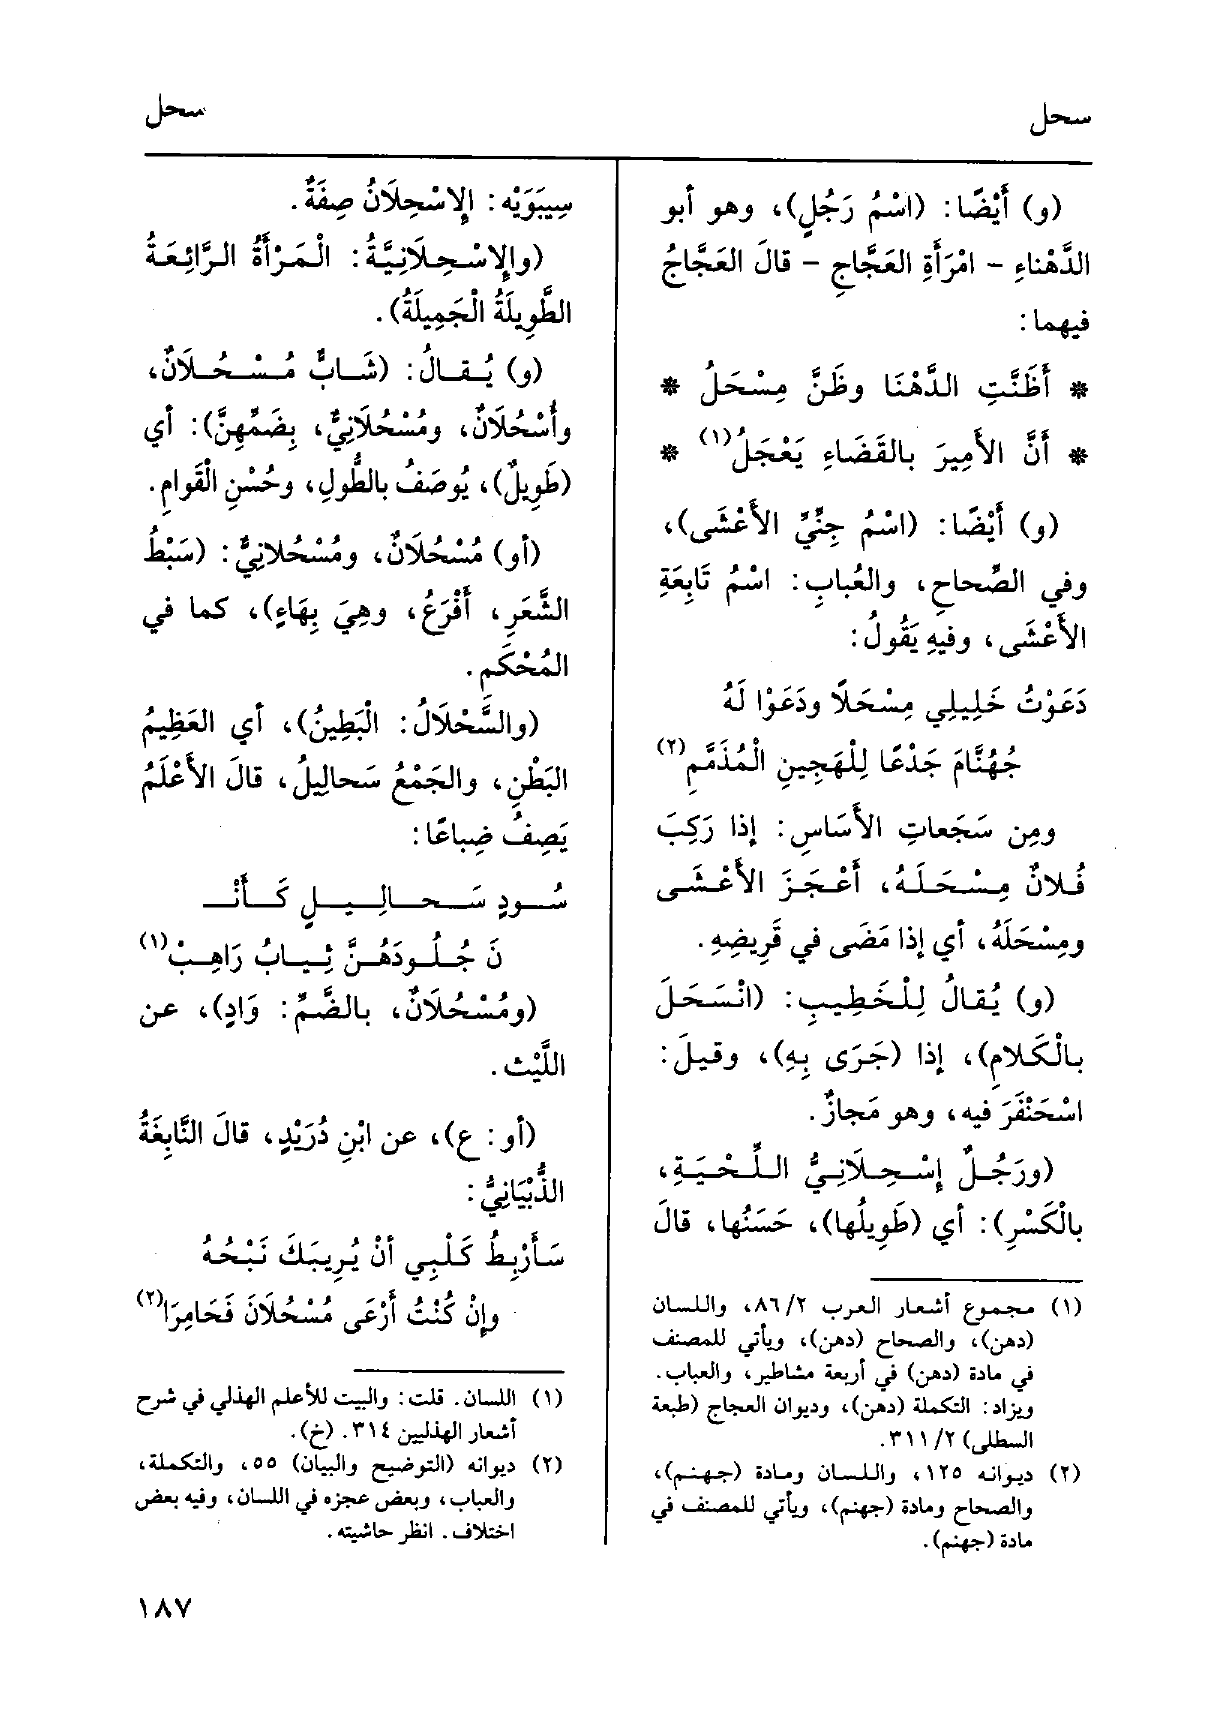 سحل
سحل
(و) أَيْضًا: (اسْمُ رَجُلٍ)، وهو أبو
الدَّهْناءِ - امْرَأَةِ العَجَّاجِ - قالَ العَجَّاجُ
فيهما:
* أَظَنَّتِ الدَّهْنَا وظَنَّ مِسْحَلُ *
* أَنَّ الأَمِيرَ بالقَضَاءِ يَعْجَلُ(١) *
(و) أَيْضًا: (اسْمُ جِنِّيِّ الأَعْشَى)،
وفي الصِّحاحِ، والعُبابِ: اسْمُ تَابِعَةِ
الأَعْشَى، وفيهِ يَقُولُ:
دَعَوْتُ خَلِيلِي مِسْحَلًا ودَعَوْا لَهُ
جُهُنَّامَ جَدْعًا لِلْهَجِينِ الْمُذَمَّمِ(٢)
ومِن سَجَعاتِ الأَسَاسِ: إذا رَكِبَ
فُلانٌ مِسْحَلَهُ، أَعْجَزَ الأَعْشَى
ومِسْحَلَهُ، أي إذا مَضَى في قَرِيضِهِ.
(و) يُقالُ لِلْخَطِيبِ: (انْسَحَلَ
بالْكَلامِ)، إذا (جَرَى بِهِ)، وقيلَ:
اسْحَنْفَرَ فيه، وهو مَجازٌ.
(ورَجُلٌ إِسْحِلَانِيُّ اللِّحْيَةِ،
بالْكَسْرِ): أي (طَوِيلُها)، حَسَنُها، قالَ
(١) مجموع أشعار العرب ٨٦/٢، واللسان
(دهن)، والصحاح (دهن)، ويأتي للمصنف
في مادة (دهن) في أربعة مشاطير، والعباب.
ويزاد: التكملة (دهن)، وديوان العجاج (طبعة
السطلي) ٣١١/٢.
(٢) ديوانه ١٢٥، واللسان ومادة (جهنم)،
والصحاح ومادة (جهنم)، ويأتي للمصنف في
مادة (جهنم).
سِيبَوَيْه: الإِسْحِلَانُ صِفَةٌ.
(والإِسْحِلَانِيَّةُ: الْمَرْأَةُ الرَّائِعَةُ
الطَّوِيلَةُ الْجَمِيلَةُ).
(و) يُقالُ: (شَابٌّ مُسْحُلَانٌ،
وأُسْحُلَانٌ، ومُسْحُلَانِيٌّ، بِضَمِّهِنَّ): أي
(طَوِيلٌ)، يُوصَفُ بالطُّولِ، وحُسْنِ الْقَوامِ.
(أو) مُسْحُلَانٌ، ومُسْحُلانِيٌّ: (سَبْطُ
الشَّعَرِ، أَفْرَعُ، وهِيَ بِهَاءٍ)، كما في
المُحْكَمِ.
(والسَّحْلَالُ: الْبَطِينُ)، أي العَظِيمُ
البَطْنِ، والجَمْعُ سَحالِيلُ، قالَ الأَعْلَمُ
يَصِفُ ضِباعًا:
سُودٍ سَحالِيلٍ كَأَنْـ
نَ جُلُودَهُنَّ ثِيابُ رَاهِبْ(١)
(ومُسْحُلَانٌ، بالضَّمِّ: وَادٍ)، عن
اللَّيْث.
(أو: ع)، عن ابْنِ دُرَيْدٍ، قالَ النَّابِغَةُ
الذُّبْيَانِيُّ:
سَأَرْبِطُ كَلْبِي أنْ يُرِيبَكَ نَبْحُهُ
وإِنْ كُنْتُ أَرْعَى مُسْحُلَانَ فَحَامِرَا(٢)
(١) اللسان. قلت: والبيت للأعلم الهذلي في شرح
أشعار الهذليين ٣١٤. (خ).
(٢) ديوانه (التوضيح والبيان) ٥٥، والتكملة،
والعباب، وبعض عجزه في اللسان، وفيه بعض
اختلاف. انظر حاشيته.
١٨٧